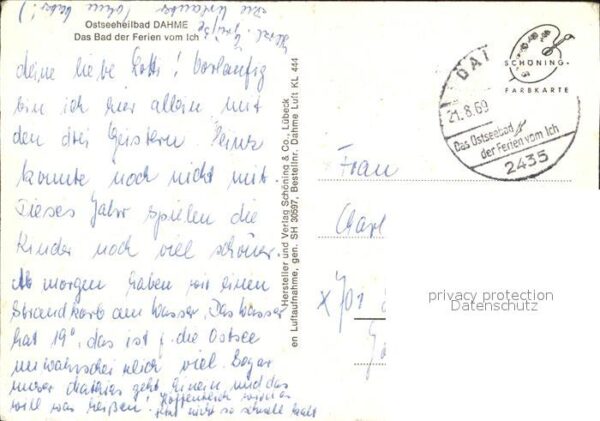 Ostseeheilbad DAHME
Das Bad der Ferien vom Ich
Herzl. Grüße
deine liebe Lotti! Vorläufig
bin ich hier allein mit
den drei Geistern. Heinz
konnte noch nicht mit.
Dieses Jahr spielen die
Kinder noch viel schöner.
Ab morgen haben wir einen
Strandkorb am Wasser. Das Wasser
hat 19°, das ist f. die Ostsee
unwahrscheinlich viel. Sogar
unser Mathias geht hinein und das
will was heißen! Hoffentlich wird es
hier nicht so schnell kalt
Hersteller und Verlag Schöning & Co., Lübeck
en Luftaufnahme, gen. SH 30597, Bestellnr. Dahme Luft KL 444
SCHÖNING
FARBKARTE
DA
21.8.69
Das Ostseebad
der Ferien vom Ich
2435
Frau
Charl
privacy protection
Datenschutz